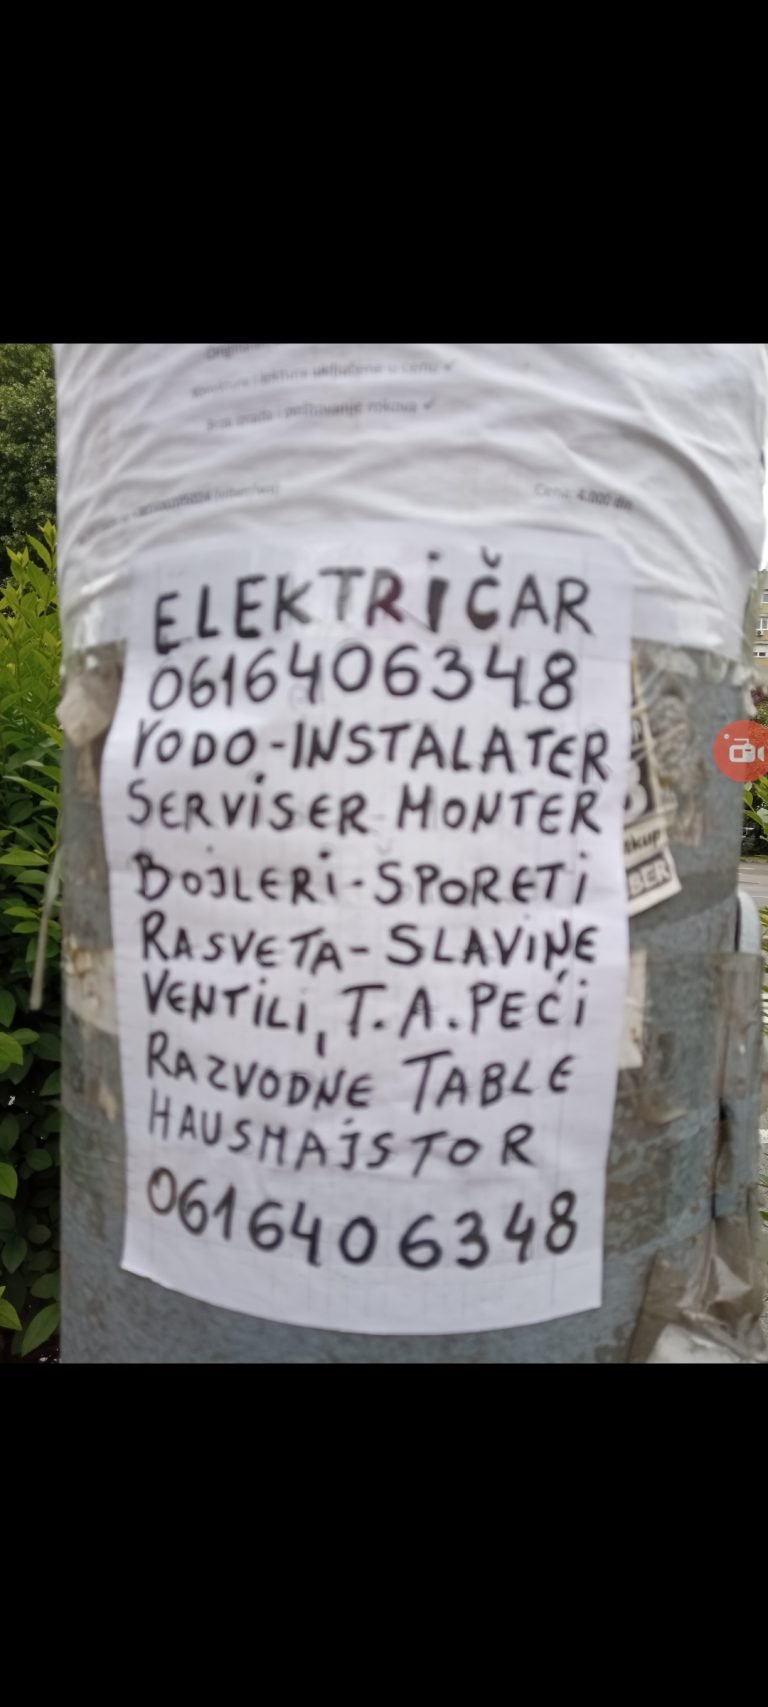 uključena u cenu ✓
i poštovanje rokova ✓
Cena: 4.000 din
ELEKTRIČAR
0616406348
VODO-INSTALATER
SERVISER-MONTER
BOJLERI-SPORETI
RASVETA-SLAVINE
VENTILI, T.A.PEĆI
RAZVODNE TABLE
HAUSMAJSTOR
0616406348